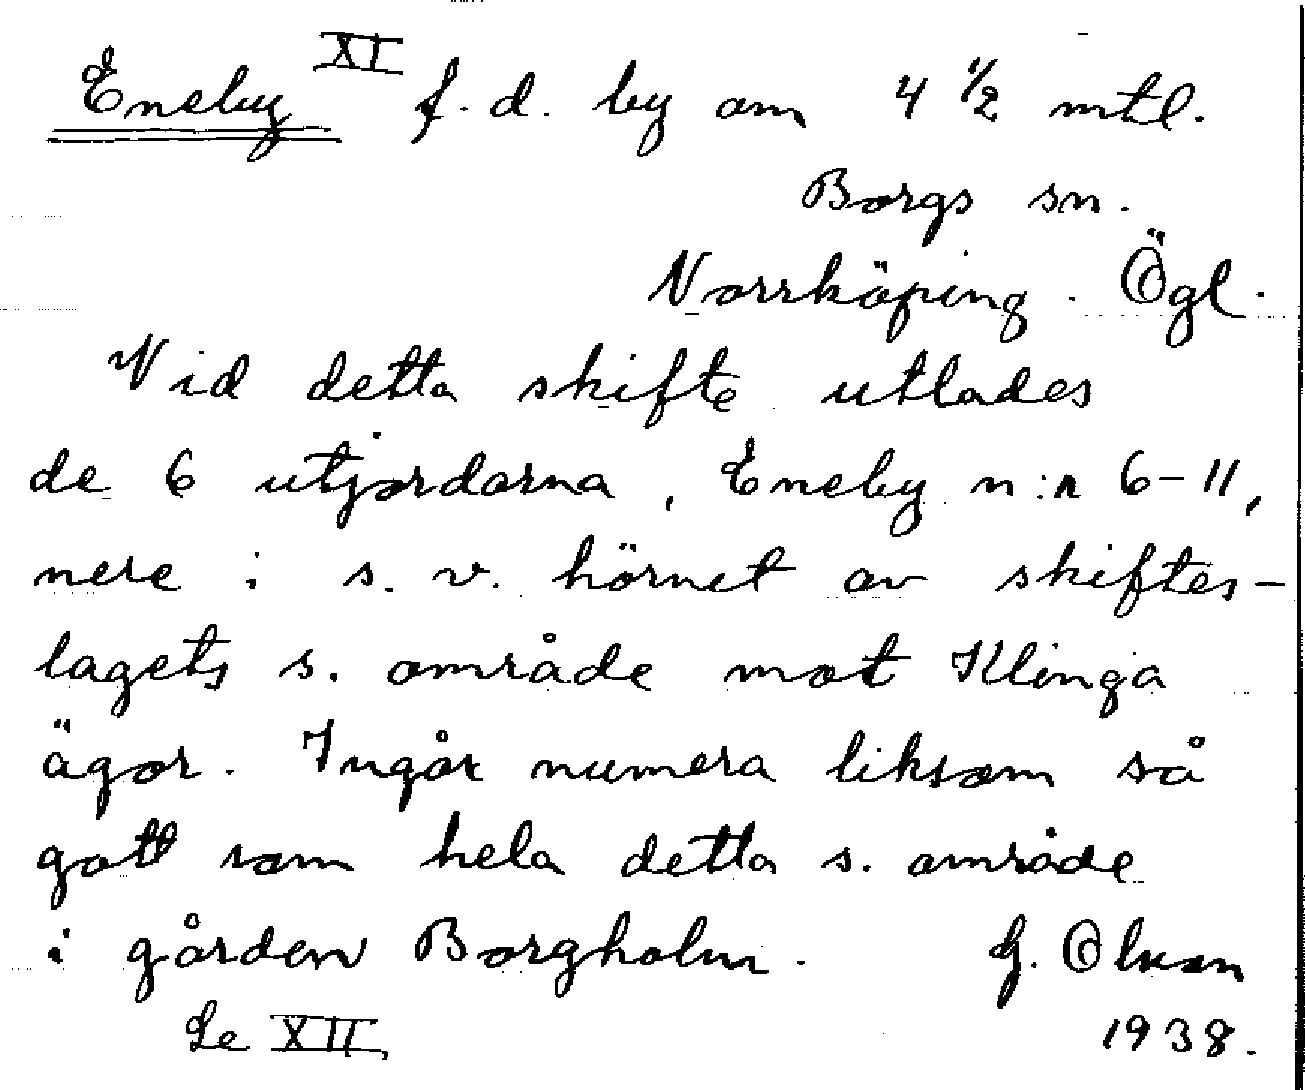 Eneby XI f. d. by om 4 1/2 mtl.
Borgs sn.
Norrköping. Ögl.
Vid detta skifte utlades
de 6 utjordarna, Eneby n:r 6-11,
nere i s. v. hörnet av skiftes-
lagets s. område mot Klinga
ägor. Ingår numera liksom så
gott som hela detta s. område
i gården Borgholm. G. Olsson
Se XII, 1938.